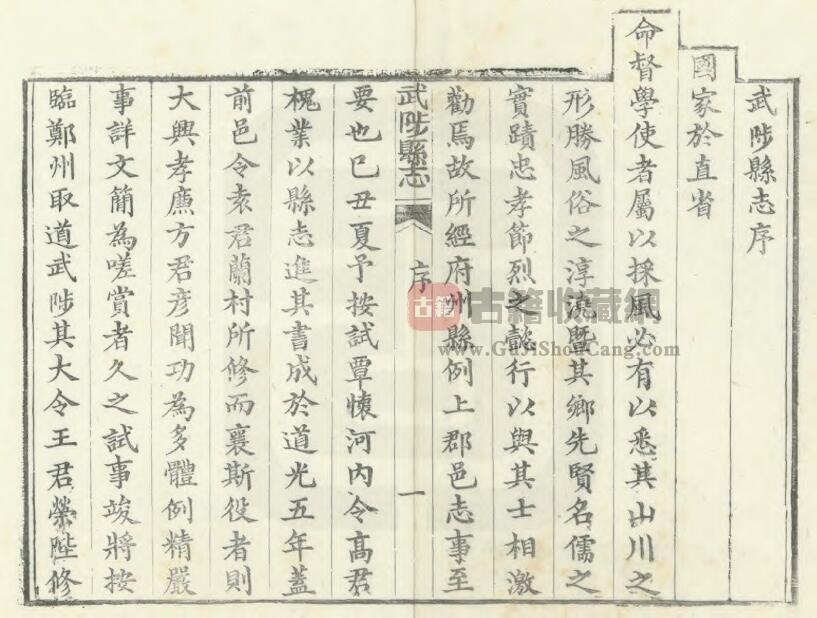 武陟縣志序
國家於直省
命督學使者屬以採風必有以悉其山川之
形勝風俗之淳澆暨其鄉先賢名儒之
實蹟忠孝節烈之懿行以與其士相激
勸焉故所經府州縣例上郡邑志事至
武陟縣志 序 一
要也己丑夏予按試覃懷河内令髙君
槐業以縣志進其書成於道光五年蓋
前邑令袁君蘭村所修而襄斯役者則
大興孝廉方君彦聞功為多體例精嚴
事詳文簡為嗟賞者久之試事竣將按
臨鄭州取道武陟其大令王君榮陛修
古籍 古籍收藏網
www.GuJiShouCang.com